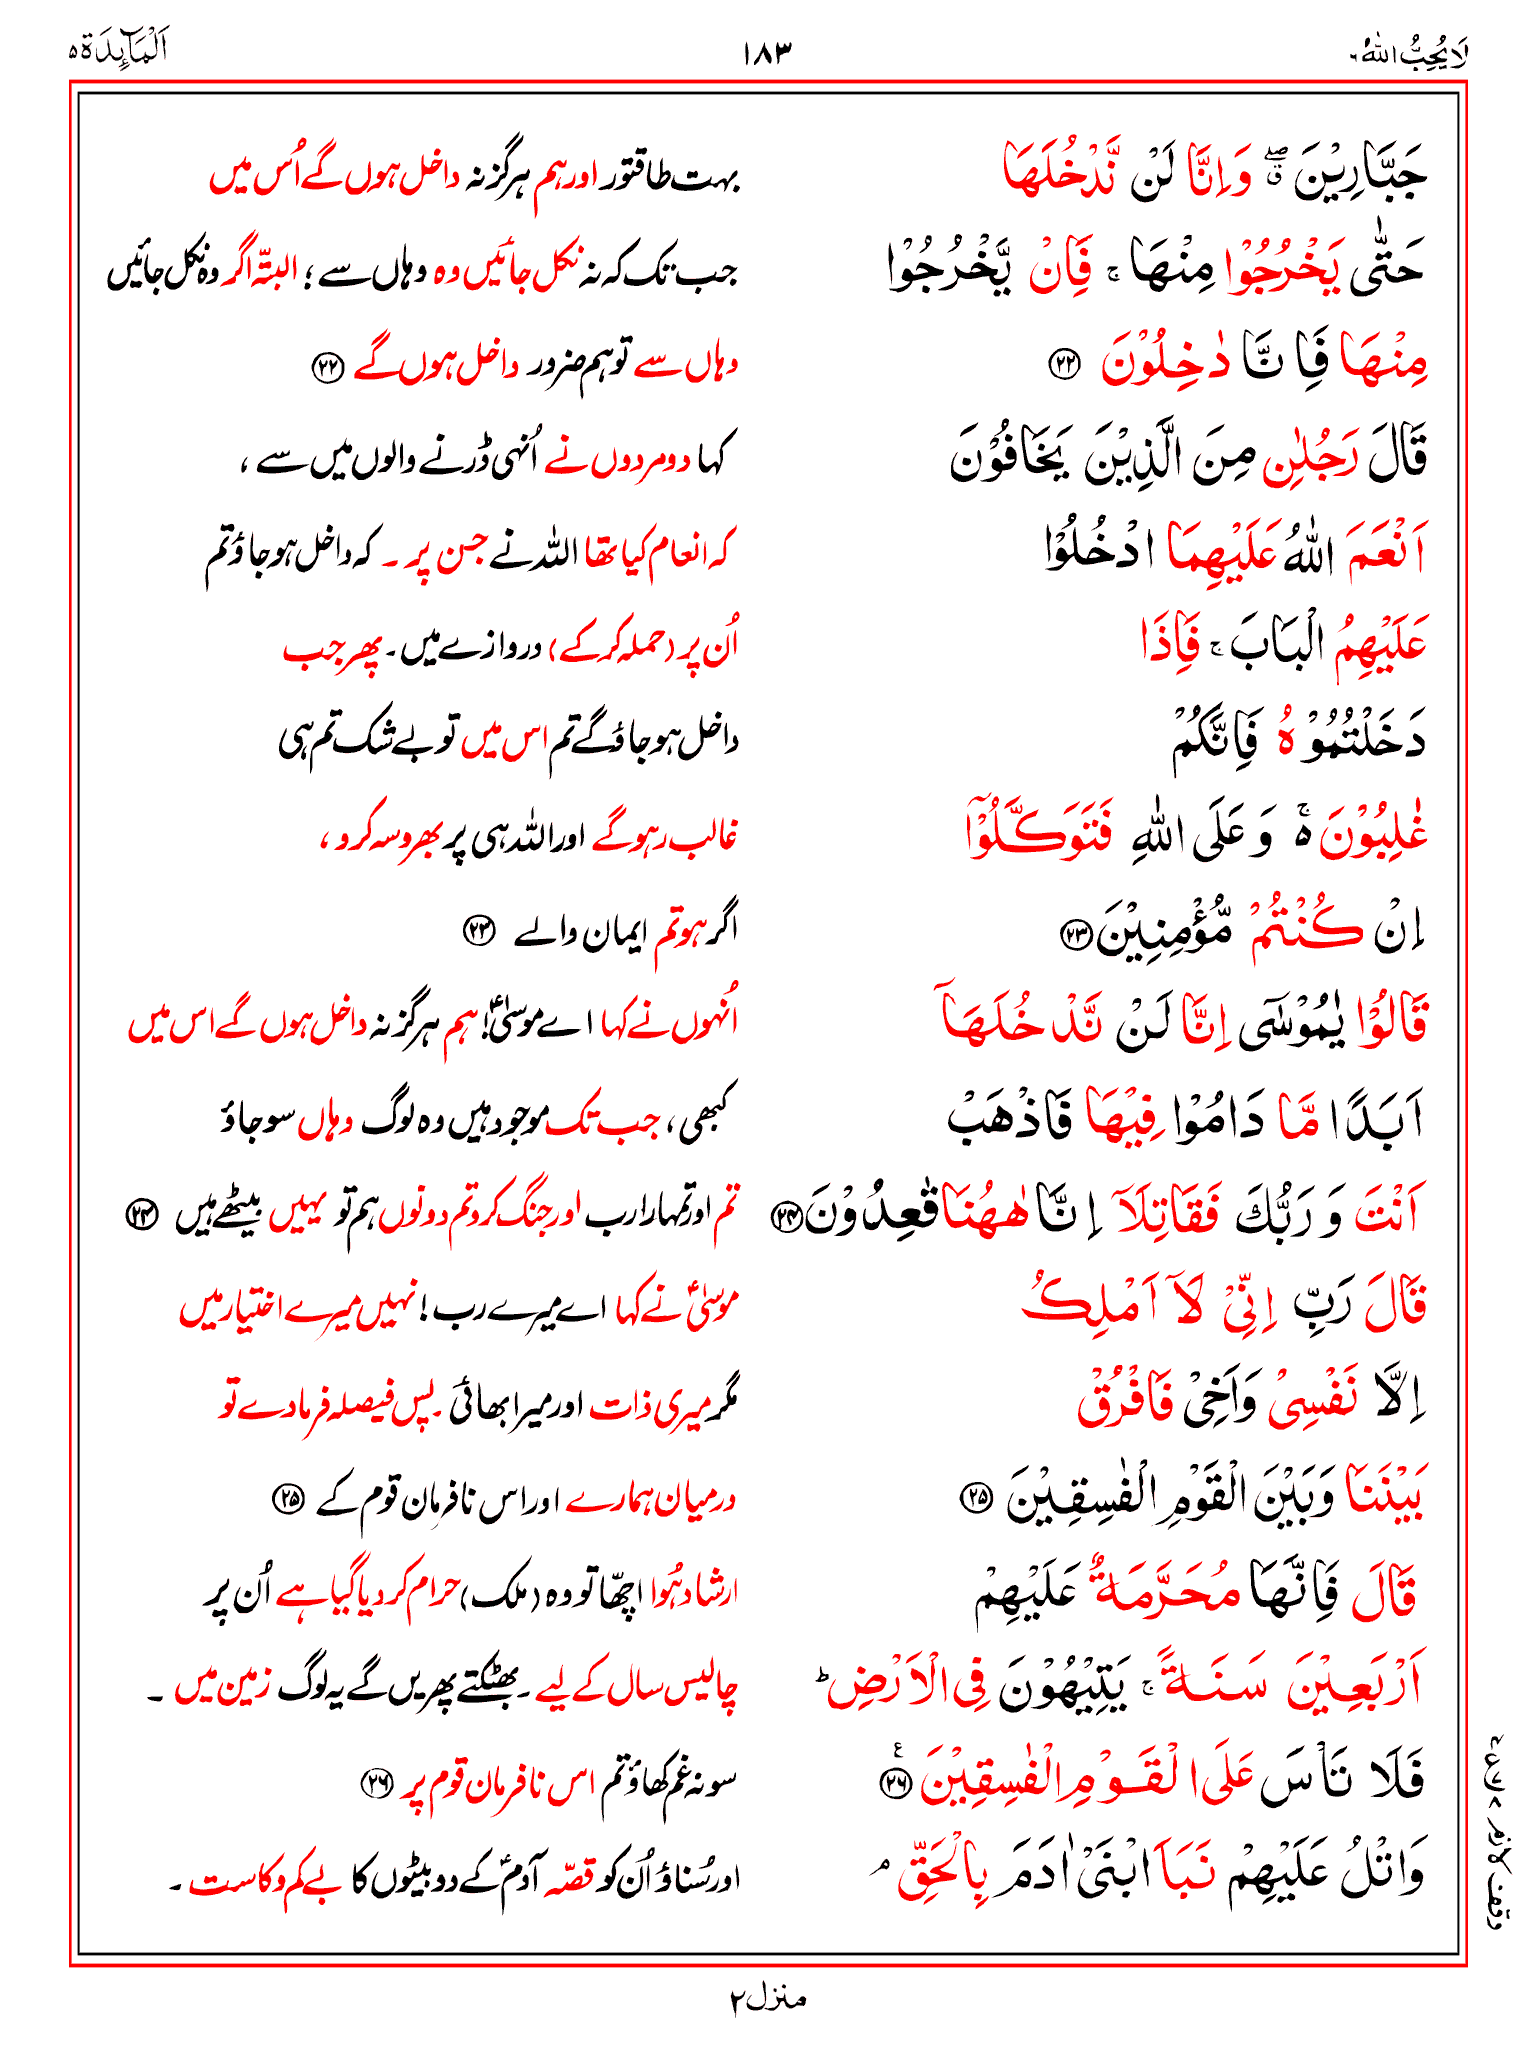 لَا يُحِبُّ اللهُ ٦
١٨٣
اَلْمَآئِدَة ٥
جَبَّارِيْنَ ۖۗ وَاِنَّا لَنْ نَّدْخُلَهَا بہت طاقتور اور ہم ہرگز نہ داخل ہوں گے اُس میں
حَتّٰى يَخْرُجُوْا مِنْهَا ۚ فَاِنْ يَّخْرُجُوْا جب تک کہ نہ نکل جائیں وہ وہاں سے ؛ البتّہ اگر وہ نکل جائیں
مِنْهَا فَاِنَّا دٰخِلُوْنَ ۲۲ وہاں سے تو ہم ضرور داخل ہوں گے ۲۲
قَالَ رَجُلٰنِ مِنَ الَّذِيْنَ يَخَافُوْنَ کہا دو مردوں نے اُنہی ڈرنے والوں میں سے ،
اَنْعَمَ اللهُ عَلَيْهِمَا ادْخُلُوْا کہ انعام کیا تھا اللہ نے جن پر ۔ کہ داخل ہو جاؤ تم
عَلَيْهِمُ الْبَابَ ۚ فَاِذَا اُن پر (حملہ کر کے) دروازے میں ۔ پھر جب
دَخَلْتُمُوْهُ فَاِنَّكُمْ داخل ہو جاؤ گے تم اس میں تو بے شک تم ہی
غٰلِبُوْنَ ەۚ وَعَلَى اللهِ فَتَوَكَّلُوْٓا غالب رہو گے اور اللہ ہی پر بھروسہ کرو ،
اِنْ كُنْتُمْ مُّؤْمِنِيْنَ ۲۳ اگر ہو تم ایمان والے ۲۳
قَالُوْا يٰمُوْسٰٓى اِنَّا لَنْ نَّدْخُلَهَآ اُنہوں نے کہا اے موسیٰؑ! ہم ہرگز نہ داخل ہوں گے اس میں
اَبَدًا مَّا دَامُوْا فِيْهَا فَاذْهَبْ کبھی ، جب تک موجود ہیں وہ لوگ وہاں سو جاؤ
اَنْتَ وَرَبُّكَ فَقَاتِلَآ اِنَّا هٰهُنَا قٰعِدُوْنَ ۲۴ تم اور تمہارا رب اور جنگ کرو تم دونوں ہم تو یہیں بیٹھے ہیں ۲۴
قَالَ رَبِّ اِنِّيْ لَآ اَمْلِكُ موسیٰؑ نے کہا اے میرے رب ! نہیں میرے اختیار میں
اِلَّا نَفْسِيْ وَاَخِيْ فَافْرُقْ مگر میری ذات اور میرا بھائی ۔ پس فیصلہ فرما دے تو
بَيْنَنَا وَبَيْنَ الْقَوْمِ الْفٰسِقِيْنَ ۲۵ درمیان ہمارے اور اس نافرمان قوم کے ۲۵
قَالَ فَاِنَّهَا مُحَرَّمَةٌ عَلَيْهِمْ ارشاد ہُوا اچھّا تو وہ (ملک) حرام کر دیا گیا ہے اُن پر
اَرْبَعِيْنَ سَنَةً ۚ يَتِيْهُوْنَ فِي الْاَرْضِ ؕ چالیس سال کے لیے ۔ بھٹکتے پھریں گے یہ لوگ زمین میں ۔
فَلَا تَاْسَ عَلَى الْقَوْمِ الْفٰسِقِيْنَ ۲۶ ع سو نہ غم کھاؤ تم اس نافرمان قوم پر ۲۶
وَاتْلُ عَلَيْهِمْ نَبَاَ ابْنَيْ اٰدَمَ بِالْحَقِّ ۘ اور سُناؤ اُن کو قصّہ آدمؑ کے دو بیٹوں کا بے کم و کاست ۔
وقف لازم
منزل ۲